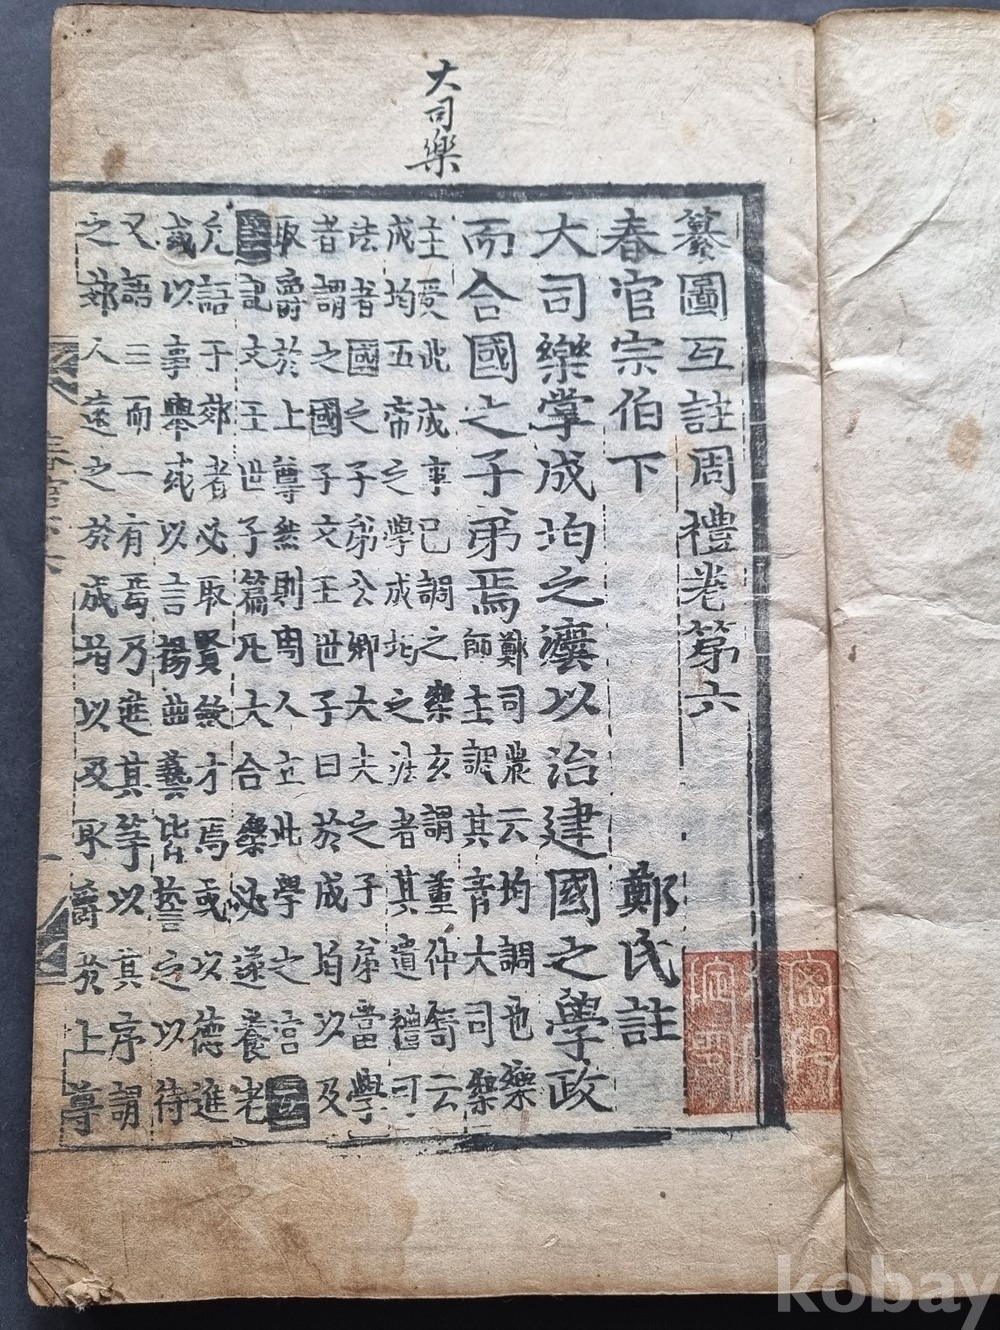 大司樂
纂圖互註周禮卷第六
春官宗伯下 鄭氏註
大司樂掌成均之灋以治建國之學政
而合國之子弟焉
鄭司農云均調也樂
師主調其音大司樂
主受此成事已調之樂玄謂董仲舒云
成均五帝之學成均之法者其遺禮可
法者國之子弟公卿大夫之子弟當學
者謂之國子文王世子曰於成均以及
取爵於上尊然則周人立此學之宮
記文王世子篇凡大合樂必遂養老
凡語于郊者必取賢斂才焉或以德進
或以事舉或以言揚曲藝皆誓之以待
又語三而一有焉乃進其等以其序謂
之郊人遠之於成均以及取爵於上尊
kobay